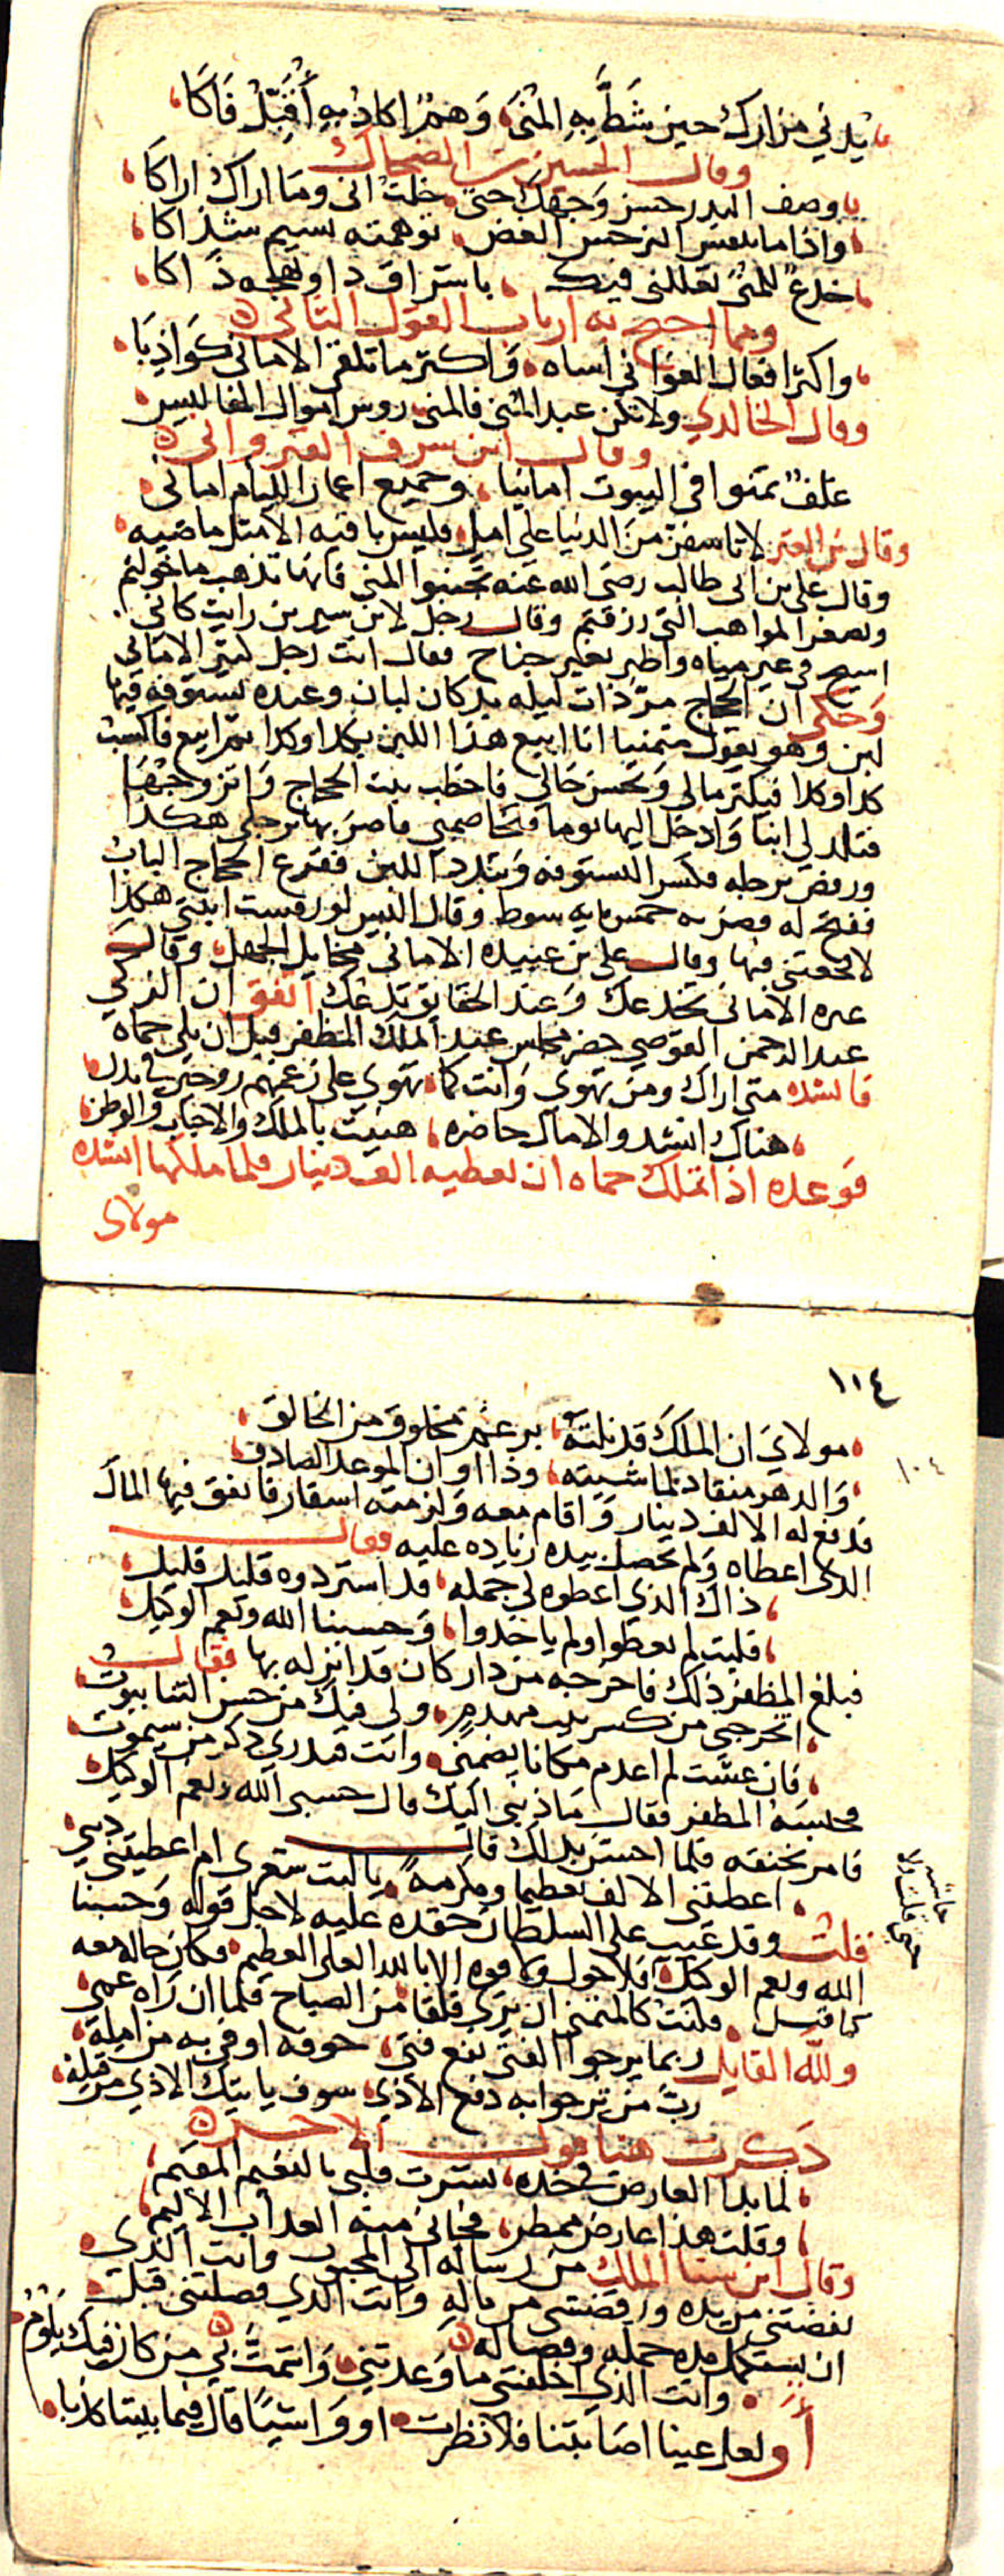 يدني مزارك حين شط به المنى، وهم اكاد به اقبل فاكا،
وقال الحسين بن الضحاك
يا وصف البدر حسن وجهك حتى، خلت اني وما اراك اراكا،
واذا ما تنفس النرجس الغض، توهمته نسيم شذاكا،
خدع للمنى تعللني فيك، باشراق ذا وبهجة ذاكا،
ومما احتج به ارباب القول الثاني
واكثر افعال الغواني اساه، واكثر ما تلقى الاماني كواذبا،
وقال الخالدي ولا تكن عبد المنى فالمنى روس اموال المفاليس
وقال ابن شرف القيرواني
علف تمنوا في البيوت امانيا، وجميع اعمار الليام اماني
وقال بن المعتز لا تاسفن من الدنيا على امل فليس باقيه الا مثل ماضيه
وقال علي بن ابي طالب رضي الله عنه تجنبوا المنى فانها تذهب ما خولتم
وتصغر المواهب التي رزقتم وقال رجل لابن سيرين رايت كاني
اسبح في غير مياه واطير بغير جناح فقال انت رجل كثير الاماني
وحكى ان الحجاج مر ذات ليله بدكان لبان وعنده بستوقه فيها
لبن وهو يقول متمنيا انا ابيع هذا اللبن بكذا وكذا ثم ابيع فاكسب
كذا وكذا فيكثر مالي ويحسن حالي فاخطب بنت الحجاج واتزوجها
فتلد لي ابنا وادخل اليها يوما فتخاصمني فاضربها برجلي هكذا
ورفض برجله فكسر البستوقه وتبدد اللبن فقرع الحجاج الباب
ففتح له فضربه خمس مايه سوط وقال اليس لو رفست ابنتي هكذا
لافجعتني فيها وقال علي بن عبيده الاماني مخايل الجهل وقال
غيره الاماني تخدعك وعند الحقايق تدعك اتفق ان الزكي
عبد الرحمن القوصي حضر مجلس عند الملك المظفر قبل ان يلي حماه
فانشده متى اراك ومن تهوى وانت كما تهوى على زعمهم روحين في بدن
هناك انشد والامال حاضره، هنيت بالملك والاحباب والوطن
فوعده اذا تملك حماه ان يعطيه الف دينار فلما ملكها انشده
مولاى
١١٤
١٠٤
مولاي ان الملك قد نلته، برغم مخلوق من الخالق،
والدهر منقاد لما شيته، وذا اوان الموعد الصادق
فدفع له الالف دينار واقام معه ولزمته اسفار فانفق فيها المال
الذى اعطاه ولم يحصل بيده زياده عليه فقال
ذاك الذي اعطوه لي جمله، قد استردوه قليلا قليل،
فليت لم يعطوا ولم ياخذوا، وحسبنا الله ونعم الوكيل
فبلغ المظفر ذلك فاخرجه من دار كان قد انزله بها فقال
اتخرجني من كسر بيت مهدم، ولي فيك من حسن الثنا بيوت
فان عشت لم اعدم مكانا يضمني، وانت فتدري ذكر من سيموت
فحبسه المظفر فقال ما ذنبي اليك قال حسبي الله ونعم الوكيل
فامر بخنقه فلما احس بذلك قال
اعطتني الالف تعظيما ومكرمة، يا ليت شعرى ام اعطيتني ديتي
قلت وقد عيب على السلطان حقده عليه لاجل قوله وحسبنا
الله ونعم الوكيل فلا حول ولا قوه الا بالله العلي العظيم فكان حاله معه
كما قيل، فكنت كالمتمني ان يري فلقا من الصباح فلما ان راه عمي
ولله القايل ربما يرجو الفتى نفع فتى، خوفه اوفى به من امله
رب من ترجوا به دفع الاذى، سوف ياتيك الاذي من قبله
ذكرت هنا قول الاخر
لما بدا العارض في خده، بشرت قلبي بالنعيم المقيم،
وقلت هذا عارض ممطر، فجاني منه العذاب الاليم
وقال ابن سنا الملك من رساله الى المحبوب وانت الذي
نفضتني من يده ورفضتني من باله وانت الذي فصلتني قبل
ان يستكمل مده حمله وفصاله
وانت الذي اخلفتني ما وعدتني، واشمت بي من كان فيك يلوم
او لعل عينا اصابتنا فلا نظرت، او واشيا قال فيما بيننا كذبا